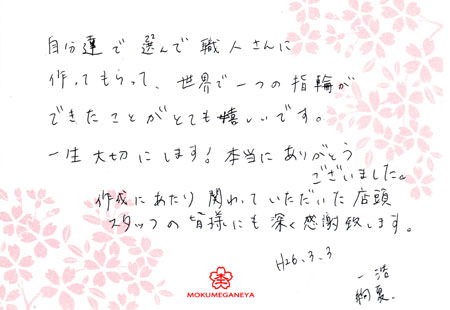 自分達で 選んで 職人さんに
作ってもらって、世界で一つの指輪が
できたことがとても嬉しいです。
一生大切にします!本当にありがとう
ございました。
作成にあたり 関わっていただいた店頭
スタッフの皆様にも深く感謝致します。
H26.3.3
一浩
絢夏.
MOKUMEGANEYA